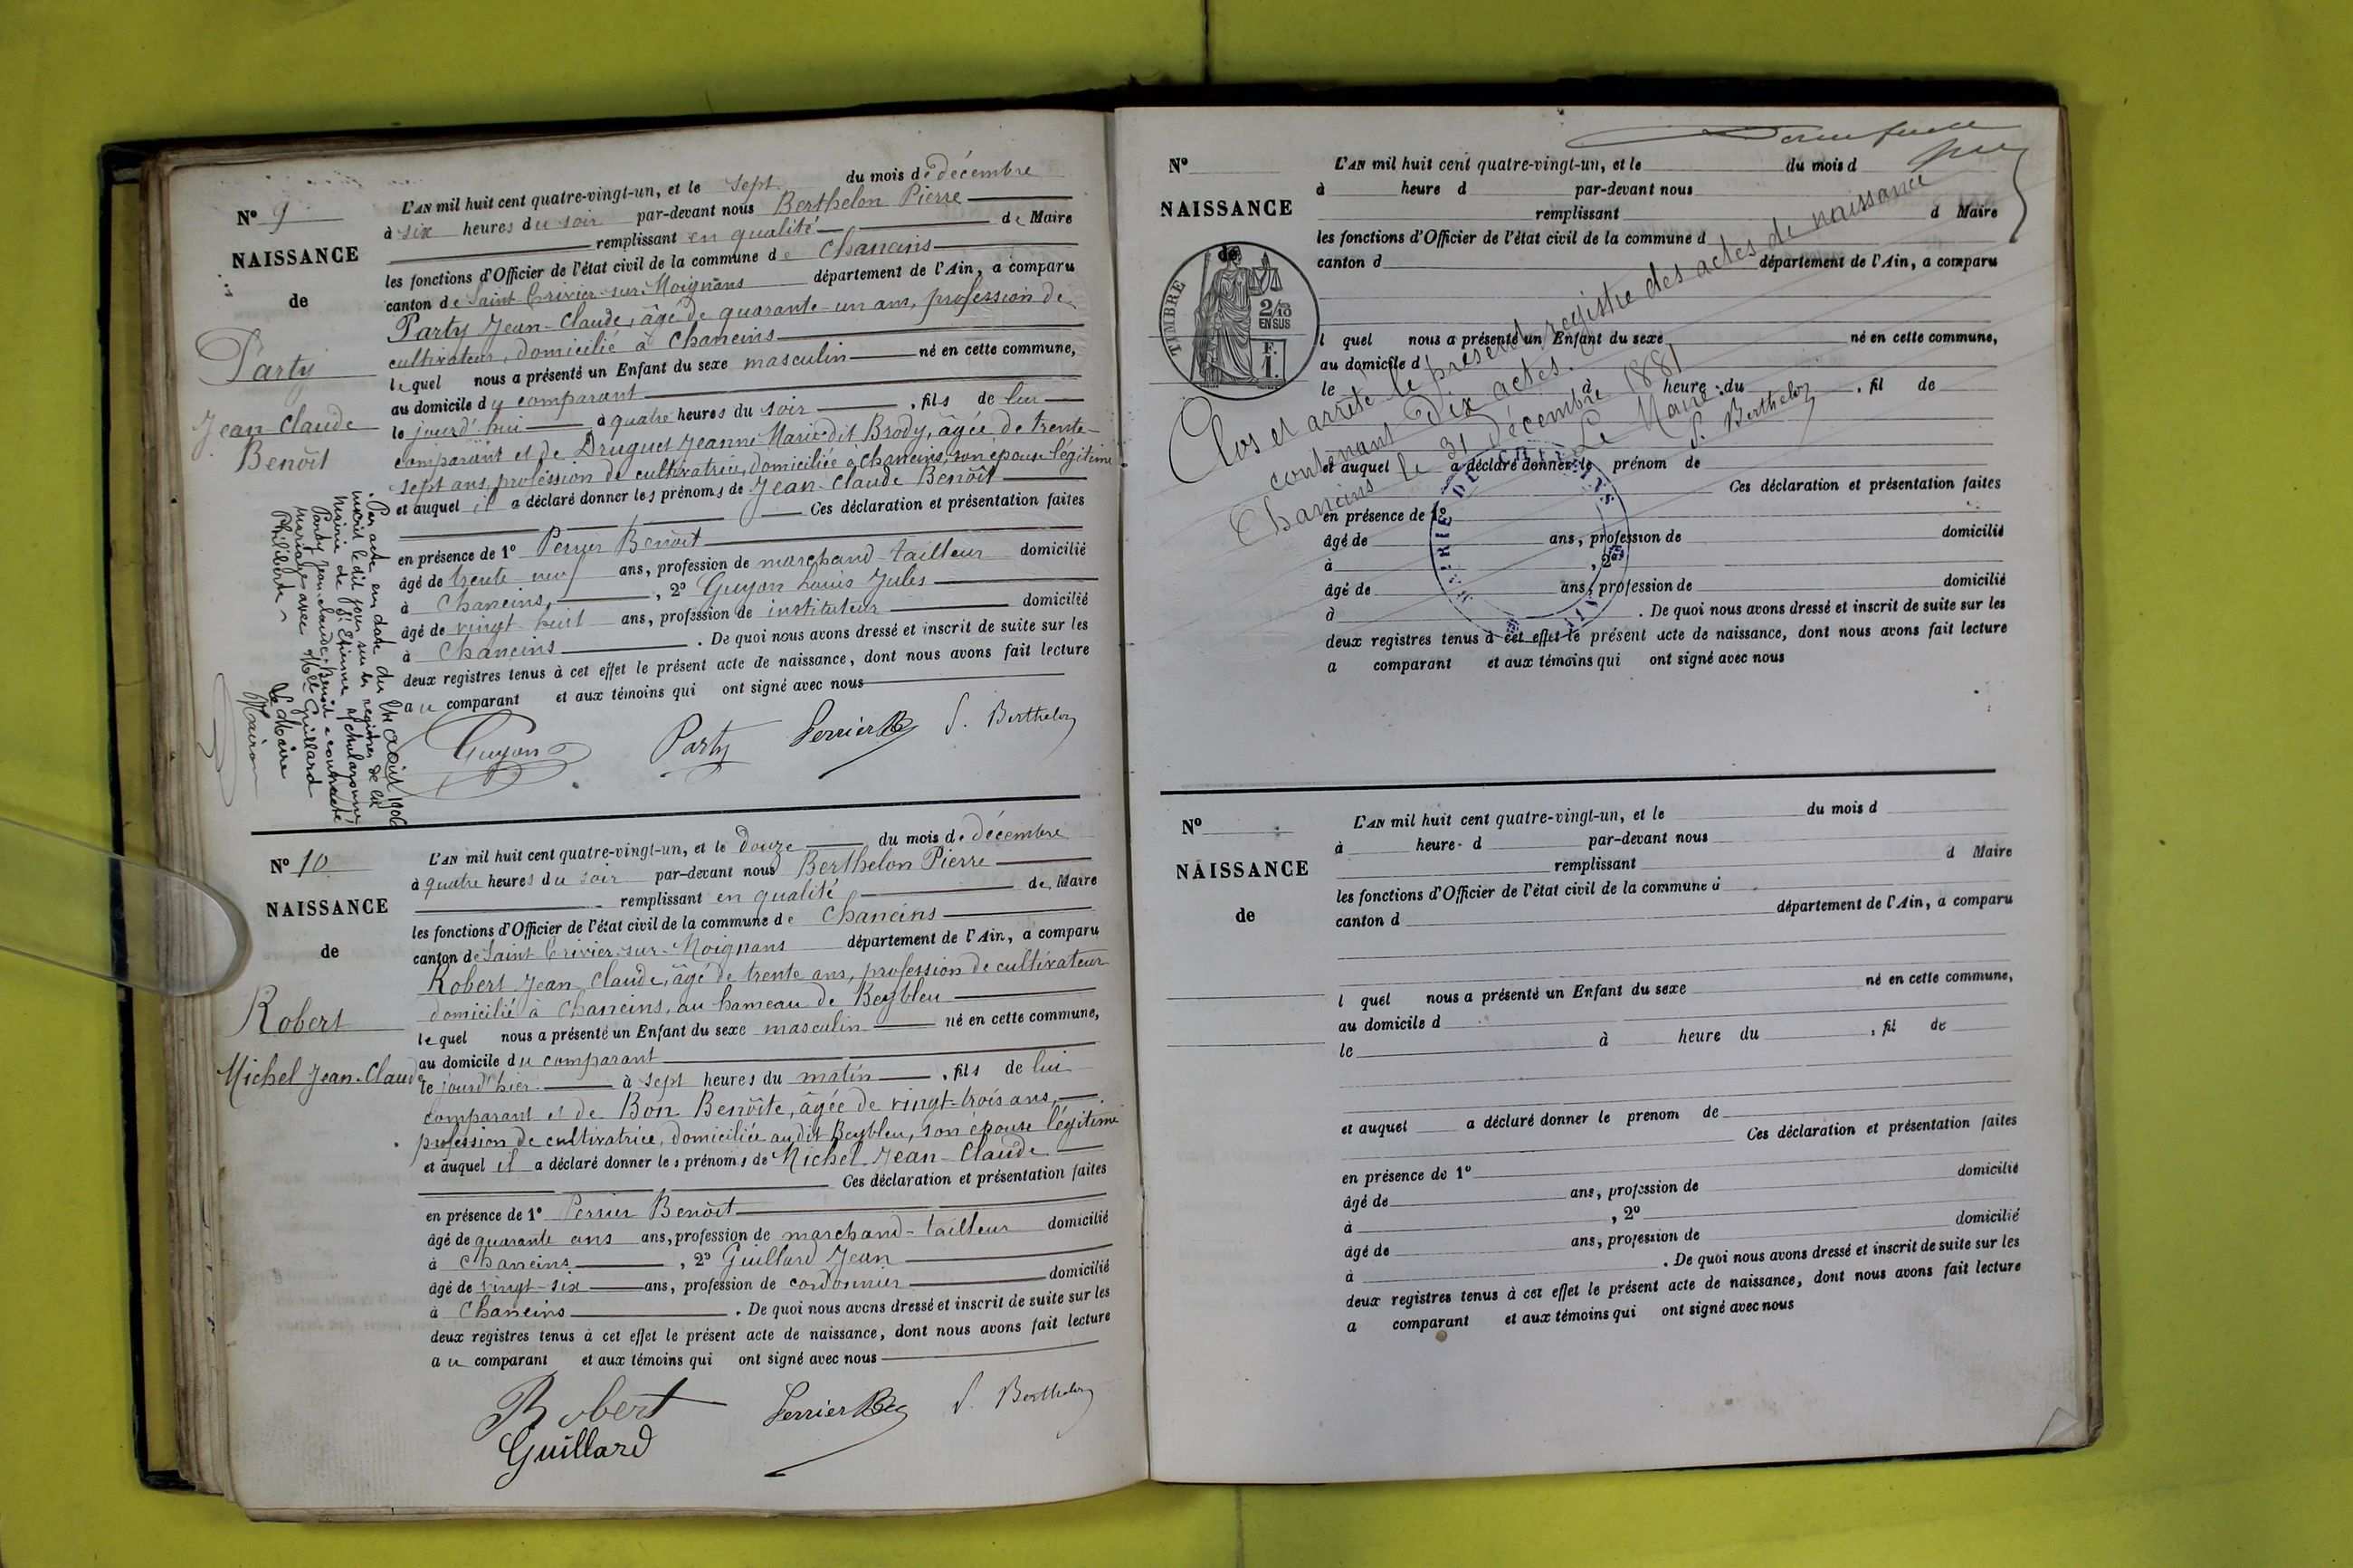 N° 9
NAISSANCE
de
Party
Jean Claude
Benoît
L'AN mil huit cent quatre-vingt-un, et le sept du mois de décembre
à six heures du soir par-devant nous Berthelon Pierre
remplissant en qualité de Maire
les fonctions d'Officier de l'état civil de la commune de Chaneins
canton de Saint Trivier-sur-Moignans département de l'Ain, a comparu
Party Jean-Claude, âgé de quarante-un ans, profession de
cultivateur, domicilié à Chaneins
lequel nous a présenté un Enfant du sexe masculin né en cette commune,
au domicile du comparant
le jourd'hui à quatre heures du soir, fils de lui
comparant et de Druguet Jeanne Marie dit Brody, âgée de trente-
sept ans, profession de cultivatrice, domiciliée à Chaneins, son épouse légitime
et auquel il a déclaré donner les prénoms de Jean-Claude Benoît
Ces déclaration et présentation faites
en présence de 1° Perrier Benoît
âgé de trente neuf ans, profession de marchand tailleur domicilié
à Chaneins, 2° Guyon Louis Jules
âgé de vingt huit ans, profession de instituteur domicilié
à Chaneins. De quoi nous avons dressé et inscrit de suite sur les
deux registres tenus à cet effet le présent acte de naissance, dont nous avons fait lecture
au comparant et aux témoins qui ont signé avec nous
Guyon Party Perrier P. Berthelon
Par acte en date du août 1906
inscrit ledit jour sur les registres de la
mairie de St Etienne s/Chalaronne
Party Jean-claude, Benoit a contracté
mariage avec Melle Guillard
Philiberte
Le Maire
N° 10
NAISSANCE
de
Robert
Michel Jean-Claude
L'AN mil huit cent quatre-vingt-un, et le douze du mois de décembre
à quatre heures du soir par-devant nous Berthelon Pierre
remplissant en qualité de Maire
les fonctions d'Officier de l'état civil de la commune de Chaneins
canton de Saint Trivier-sur-Moignans département de l'Ain, a comparu
Robert Jean Claude, âgé de trente ans, profession de cultivateur
domicilié à Chaneins, au hameau de Beybleu
lequel nous a présenté un Enfant du sexe masculin né en cette commune,
au domicile du comparant
le jourd'hier à sept heures du matin, fils de lui
comparant et de Bon Benoîte, âgée de vingt-trois ans,
profession de cultivatrice, domiciliée audit Beybleu, son épouse légitime
et auquel il a déclaré donner les prénoms de Michel Jean-Claude
Ces déclaration et présentation faites
en présence de 1° Perrier Benoît
âgé de quarante ans ans, profession de marchand-tailleur domicilié
à Chaneins, 2° Guillard Jean
âgé de vingt-six ans, profession de cordonnier domicilié
à Chaneins. De quoi nous avons dressé et inscrit de suite sur les
deux registres tenus à cet effet le présent acte de naissance, dont nous avons fait lecture
au comparant et aux témoins qui ont signé avec nous
Robert Perrier P. Berthelon
Guillard
N°
NAISSANCE
de
TIMBRE
2/10
EN SUS
F.
1.
L'AN mil huit cent quatre-vingt-un, et le du mois d
à heure d par-devant nous
remplissant d Maire
les fonctions d'Officier de l'état civil de la commune d
canton d département de l'Ain, a comparu
l quel nous a présenté un Enfant du sexe né en cette commune,
au domicile d
le à heure du , fil de
et auquel a déclaré donner le prénom de
Ces déclaration et présentation faites
en présence de 1°
âgé de ans, profession de domicilié
à , 2°
âgé de ans, profession de domicilié
à . De quoi nous avons dressé et inscrit de suite sur les
deux registres tenus à cet effet le présent acte de naissance, dont nous avons fait lecture
a comparant et aux témoins qui ont signé avec nous
Clos et arrêté le présent registre des actes de naissance
contenant Dix actes.
Chaneins le 31 décembre 1881
Le Maire
P. Berthelon
MAIRIE DE CHANEINS
AIN
N°
NAISSANCE
de
L'AN mil huit cent quatre-vingt-un, et le du mois d
à heure d par-devant nous
remplissant d Maire
les fonctions d'Officier de l'état civil de la commune d
canton d département de l'Ain, a comparu
l quel nous a présenté un Enfant du sexe né en cette commune,
au domicile d
le à heure du , fil de
et auquel a déclaré donner le prenom de
Ces déclaration et présentation faites
en présence de 1°
âgé de ans, profession de domicilié
à , 2°
âgé de ans, profession de domicilié
à . De quoi nous avons dressé et inscrit de suite sur les
deux registres tenus à cet effet le présent acte de naissance, dont nous avons fait lecture
a comparant et aux témoins qui ont signé avec nous